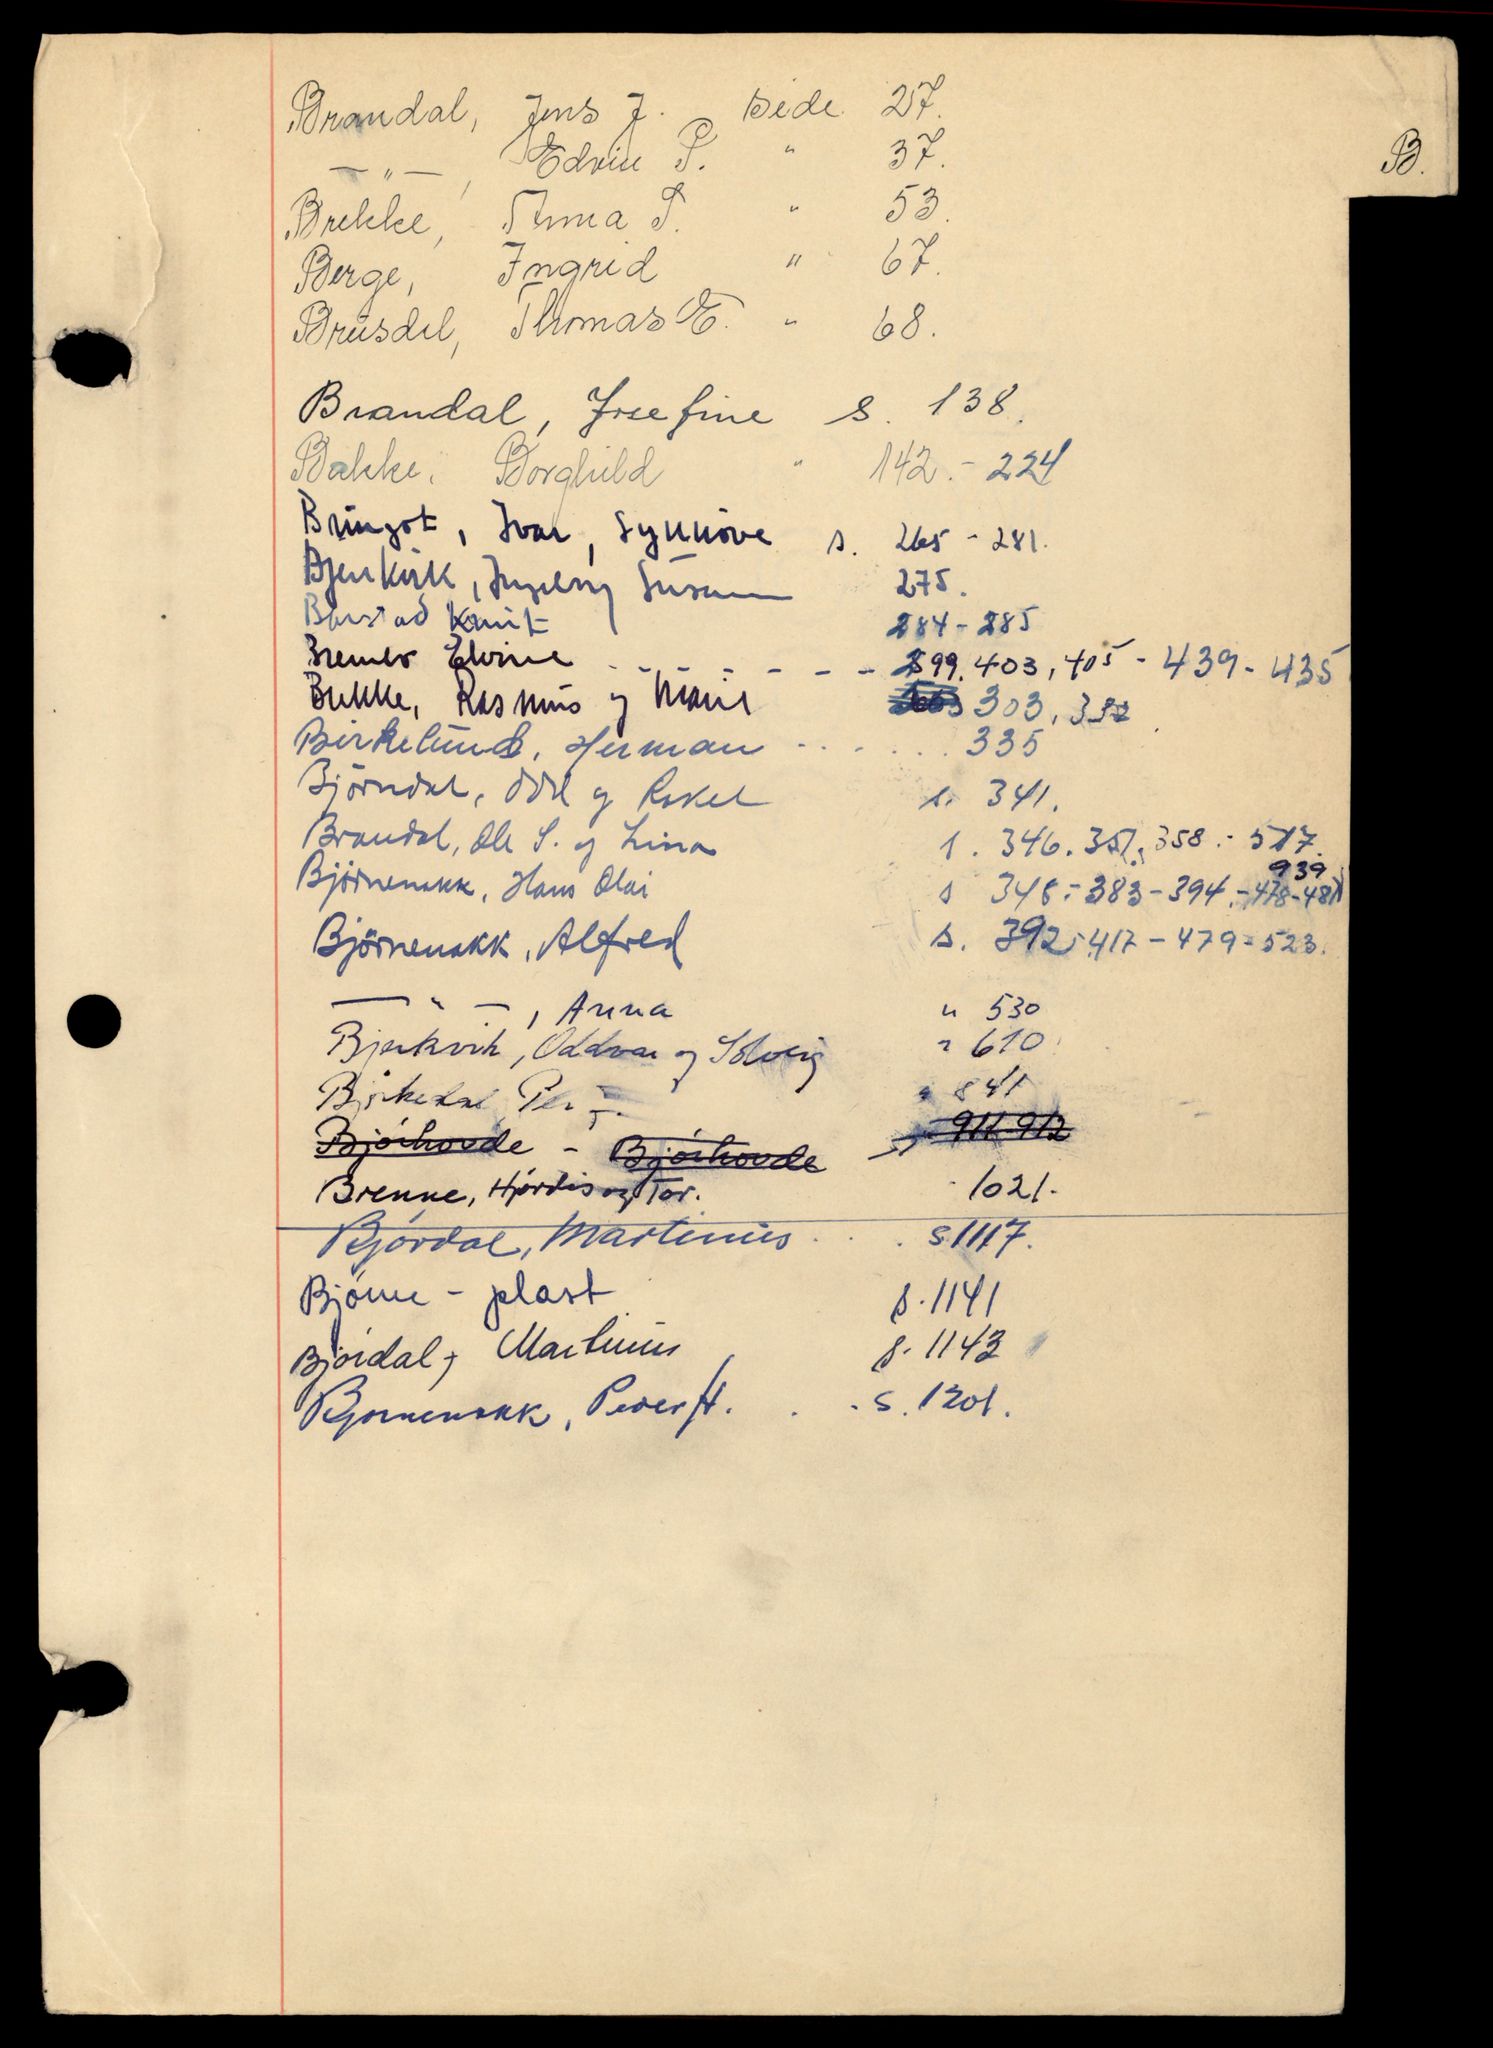 B.
Brandal, Jens J. side 27.
— " — , Edvin P. " 37.
Brekke, Anna P. " 53.
Berge, Ingrid " 67.
Brusdel, Thomas E. " 68.
Brandal, Josefine s. 138.
Bakke, Borghild " 142. - 224
Bringot, Ivar, Synnøve s. 265 - 281.
Bjerkvik, Ingeborg 275.
Barstad Knut 284 - 285
Bremer Elvine - - - - - - 299. 403, 405 - 439 - 435
Brekke, Rasmus og Marie 303, 332
Birkelund, Herman . . . . . . 335
Björndal, Odd og Rakel s. 341.
Brandal, Ole S. og Lina s. 346. 357. 358. - 517.
939
Björnenakk, Hans Olai s 348 - 383 - 394 - 478 - 481
Björnenakk, Alfred s. 392 - 417 - 479 - 523.
— " — , Anna " 530
Bjerkvik, Oddvar og Solveig " 610
Björkedal Per " 841
Bjórhovde - Bjórhovde 911-912
Brenne, Hjørdis og Tor. 1021.
Bjórdal, Martinus . . . s 1117.
Bjórne - plast s. 1141
Bjórdal, Martinus s. 1143
Bjornenakk, Peder H. . . s. 1201.